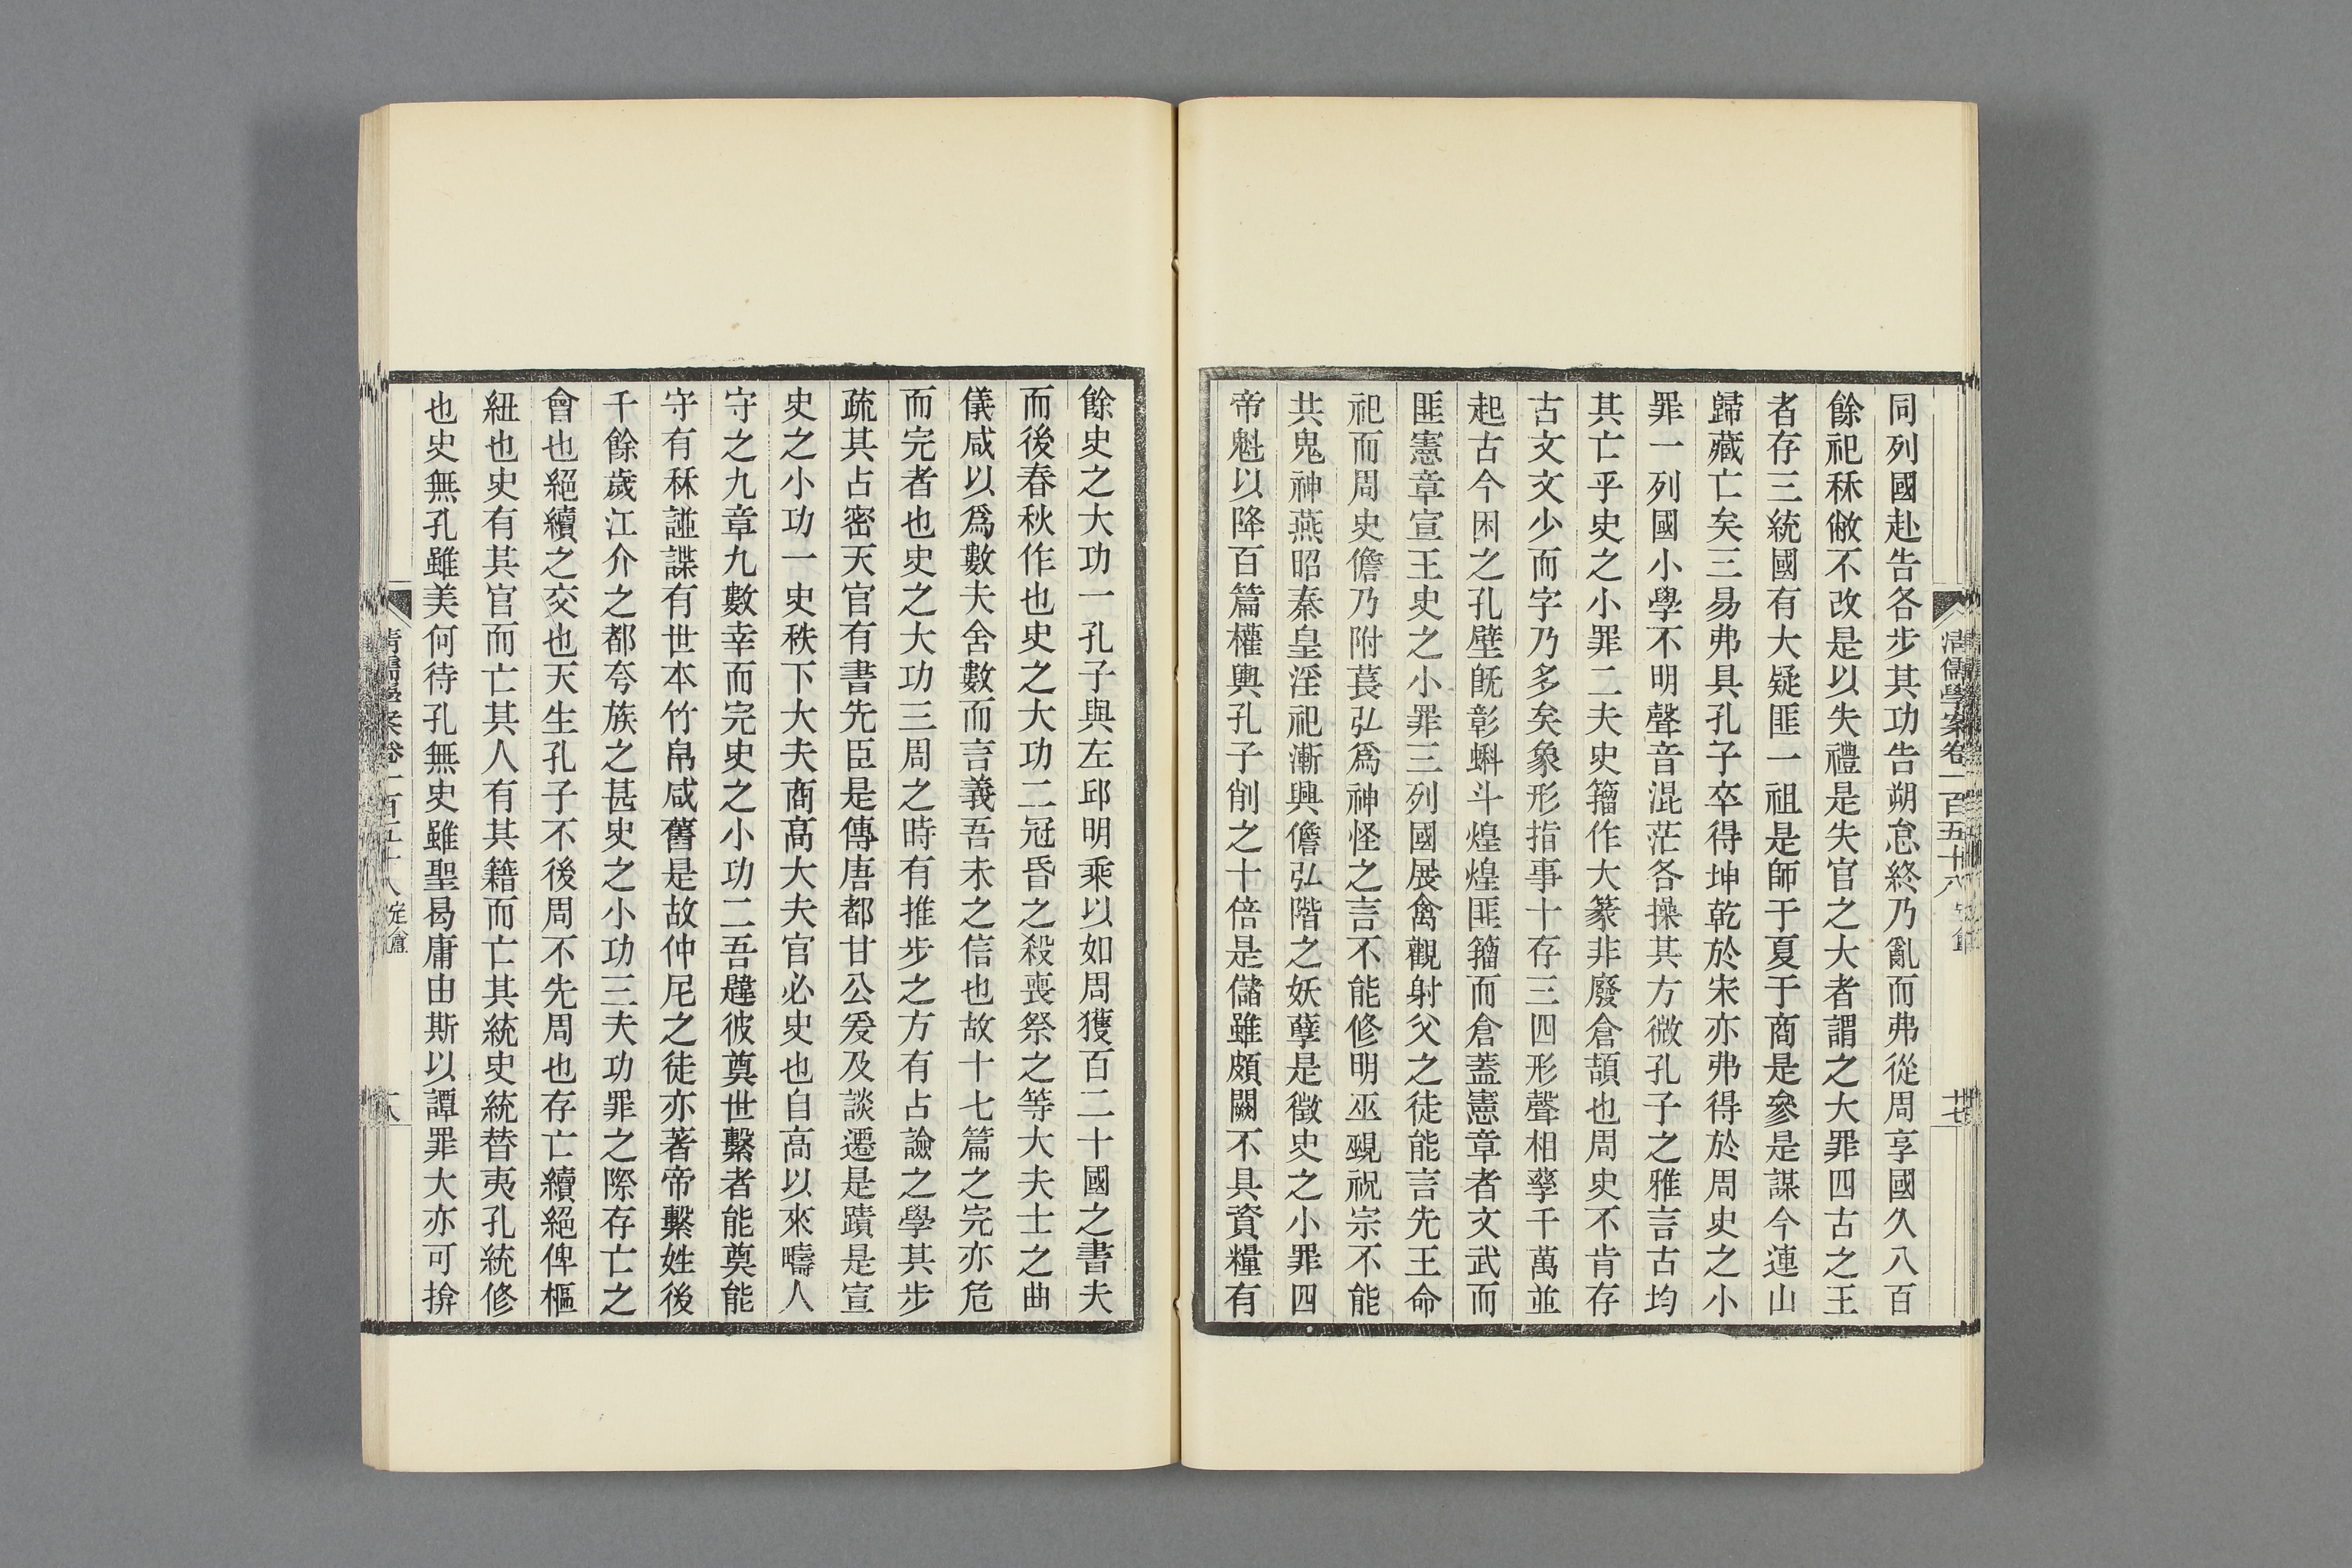 同列國赴告各步其功告朔怠終乃亂而弗從周享國久八百
餘祀秝敝不改是以失禮是失官之大者謂之大罪四古之王
者存三統國有大疑匪一祖是師于夏于商是參是謀今連山
歸藏亡矣三易弗具孔子卒得坤乾於宋亦弗得於周史之小
罪一列國小學不明聲音混茫各操其方微孔子之雅言古均
其亡乎史之小罪二夫史籀作大篆非廢倉頡也周史不肯存
古文文少而字乃多矣象形指事十存三四形聲相孳千萬並
起古今困之孔壁既彰蝌斗煌煌匪籀而倉蓋憲章者文武而
匪憲章宣王史之小罪三列國展禽觀射父之徒能言先王命
祀而周史儋乃附萇弘爲神怪之言不能修明巫覡祝宗不能
共鬼神燕昭秦皇淫祀漸興儋弘階之妖孽是徵史之小罪四
帝魁以降百篇權輿孔子削之十倍是儲雖頗闕不具資糧有
清儒學案卷一百五十八
十七
餘史之大功一孔子與左邱明乘以如周獲百二十國之書夫
而後春秋作也史之大功二冠昏之殺喪祭之等大夫士之曲
儀咸以爲數夫舍數而言義吾未之信也故十七篇之完亦危
而完者也史之大功三周之時有推步之方有占譣之學其步
疏其占密天官有書先臣是傳唐都甘公爰及談遷是蹟是宣
史之小功一史秩下大夫商高大夫官必史也自高以來疇人
守之九章九數幸而完史之小功二吾韙彼奠世繫者能奠能
守有秝諩諜有世本竹帛咸舊是故仲尼之徒亦著帝繫姓後
千餘歲江介之都夸族之甚史之小功三夫功罪之際存亡之
會也絕續之交也天生孔子不後周不先周也存亡續絕俾樞
紐也史有其官而亡其人有其籍而亡其統史統替夷孔統修
也史無孔雖美何待孔無史雖聖曷庸由斯以譚罪大亦可揜
清儒學案卷一百五十八 定盦
十八